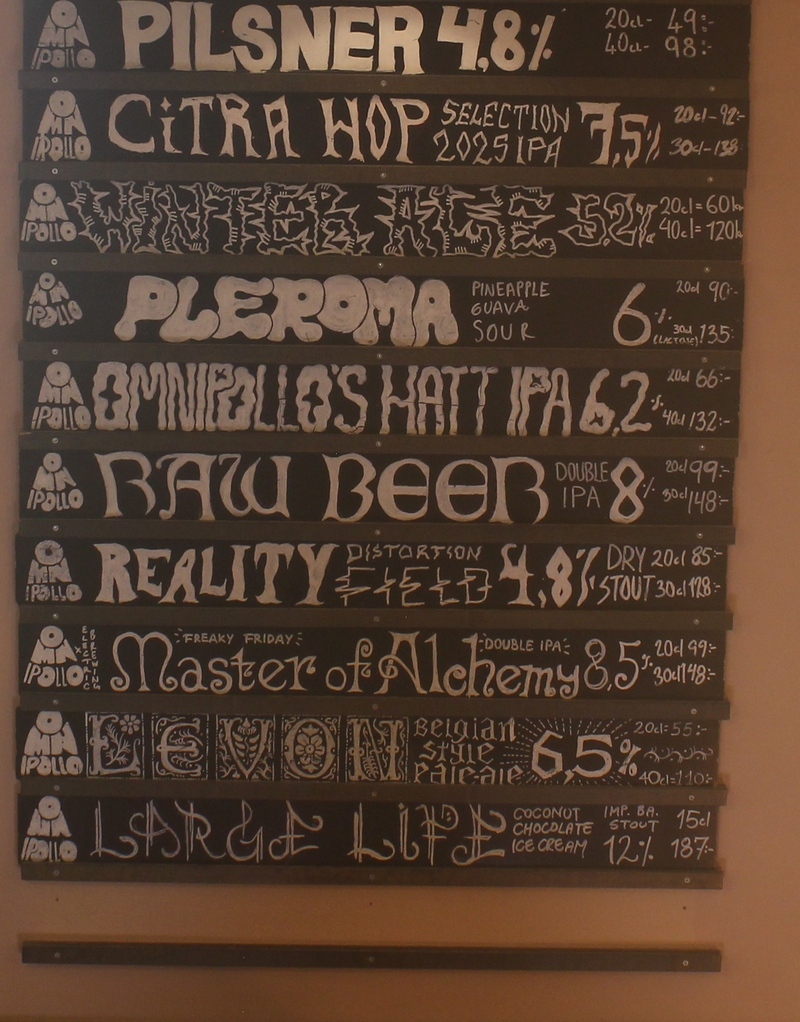 OMNIPOLLO PILSNER 4,8% 20cl- 49:-
40cl- 98:-
OMNIPOLLO CiTRA HOP SELECTION 2025 IPA 7,5% 20cl-92:-
30cl-138
OMNIPOLLO WINTER ALE 5,2% 20cl=60kr
40cl=120k
OMNIPOLLO PLEROMA PINEAPPLE GUAVA SOUR 6% (LACTOSE) 20cl 90:-
30cl 135:-
OMNIPOLLO OMNIPOLLO'S HATT IPA 6,2% 20cl 66:-
40cl 132:-
OMNIPOLLO RAW BEER DOUBLE IPA 8% 20cl 99:-
30cl 148:-
OMNIPOLLO REALITY DISTORTION FIELD 4,8% DRY STOUT 20cl 85:-
30cl 128:-
OMNIPOLLO x ELECTRIC BREWING FREAKY FRIDAY Master of Alchemy DOUBLE IPA 8,5% 20cl 99:-
30cl 148:-
OMNIPOLLO LEVON Belgian style Pale-ale 6,5% 20cl=55:-
40cl=110:-
OMNIPOLLO LARGE LIFE COCONUT CHOCOLATE ICE CREAM IMP. BA. STOUT 12% 15cl
187:-